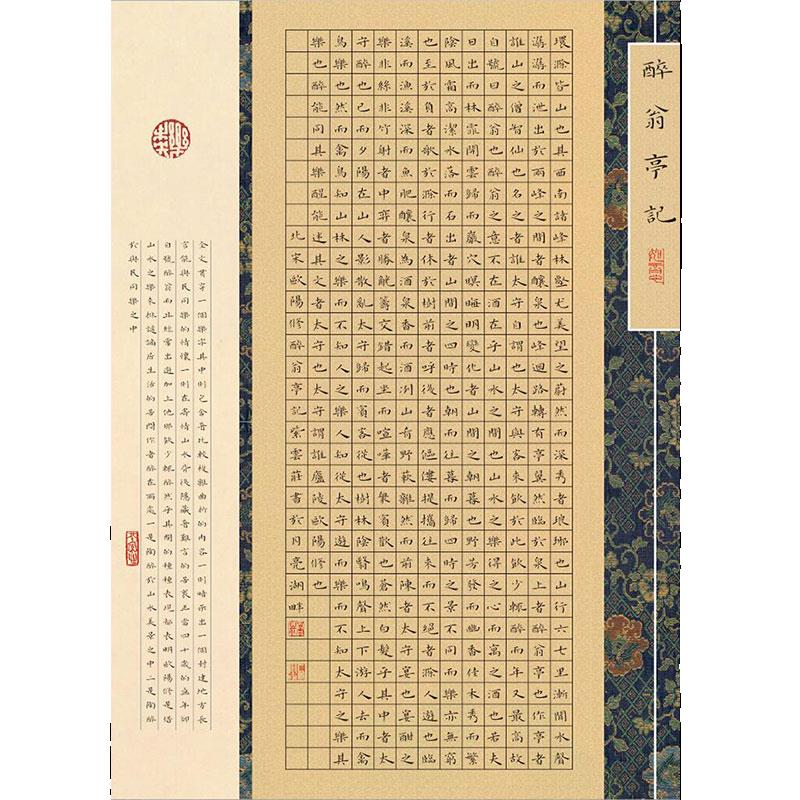 醉翁亭記
環滁皆山也其西南諸峰林壑尤美望之蔚然而深秀者琅琊也山行六七里漸聞水聲
潺潺而泄出於兩峰之間者釀泉也峰迴路轉有亭翼然臨於泉上者醉翁亭也作亭者
誰山之僧智仙也名之者誰太守自謂也太守與客來飲於此飲少輒醉而年又最高故
自號曰醉翁也醉翁之意不在酒在乎山水之間也山水之樂得之心而寓之酒也若夫
日出而林霏開雲歸而巖穴暝晦明變化者山間之朝暮也野芳發而幽香佳木秀而繁
陰風霜高潔水落而石出者山間之四時也朝而往暮而歸四時之景不同而樂亦無窮
也至於負者歌於滁行者休於樹前者呼後者應傴僂提攜往來而不絕者滁人遊也臨
溪而漁溪深而魚肥釀泉為酒泉香而酒冽山肴野蔌雜然而前陳者太守宴也宴酣之
樂非絲非竹射者中弈者勝觥籌交錯起坐而喧嘩者眾賓歡也蒼然白髮乎其中者太
守醉也已而夕陽在山人影散亂太守歸而賓客從也樹林陰翳鳴聲上下游人去而禽
鳥樂也然而禽鳥知山林之樂而不知人之樂人知從太守遊而樂而不知太守之樂其
樂也醉能同其樂醒能述其文者太守也太守謂誰廬陵歐陽修也
北宋歐陽修醉翁亭記紫雲莊書於月亮湖畔
全文貫穿一個樂字其中則包含着比較複雜曲折的內容一則暗示出一個封建地方長
官能與民同樂的情懷一則在寄情山水背後隱藏着難言的苦衷正當四十歲的盛年卻
自號醉翁而且經常出遊加上他那飲少輒醉然乎其間的種種表現都表明歐陽修是借
山水之樂來排遣謫居生活的苦悶作者醉在兩處一是陶醉於山水美景之中二是陶醉
於與民同樂之中